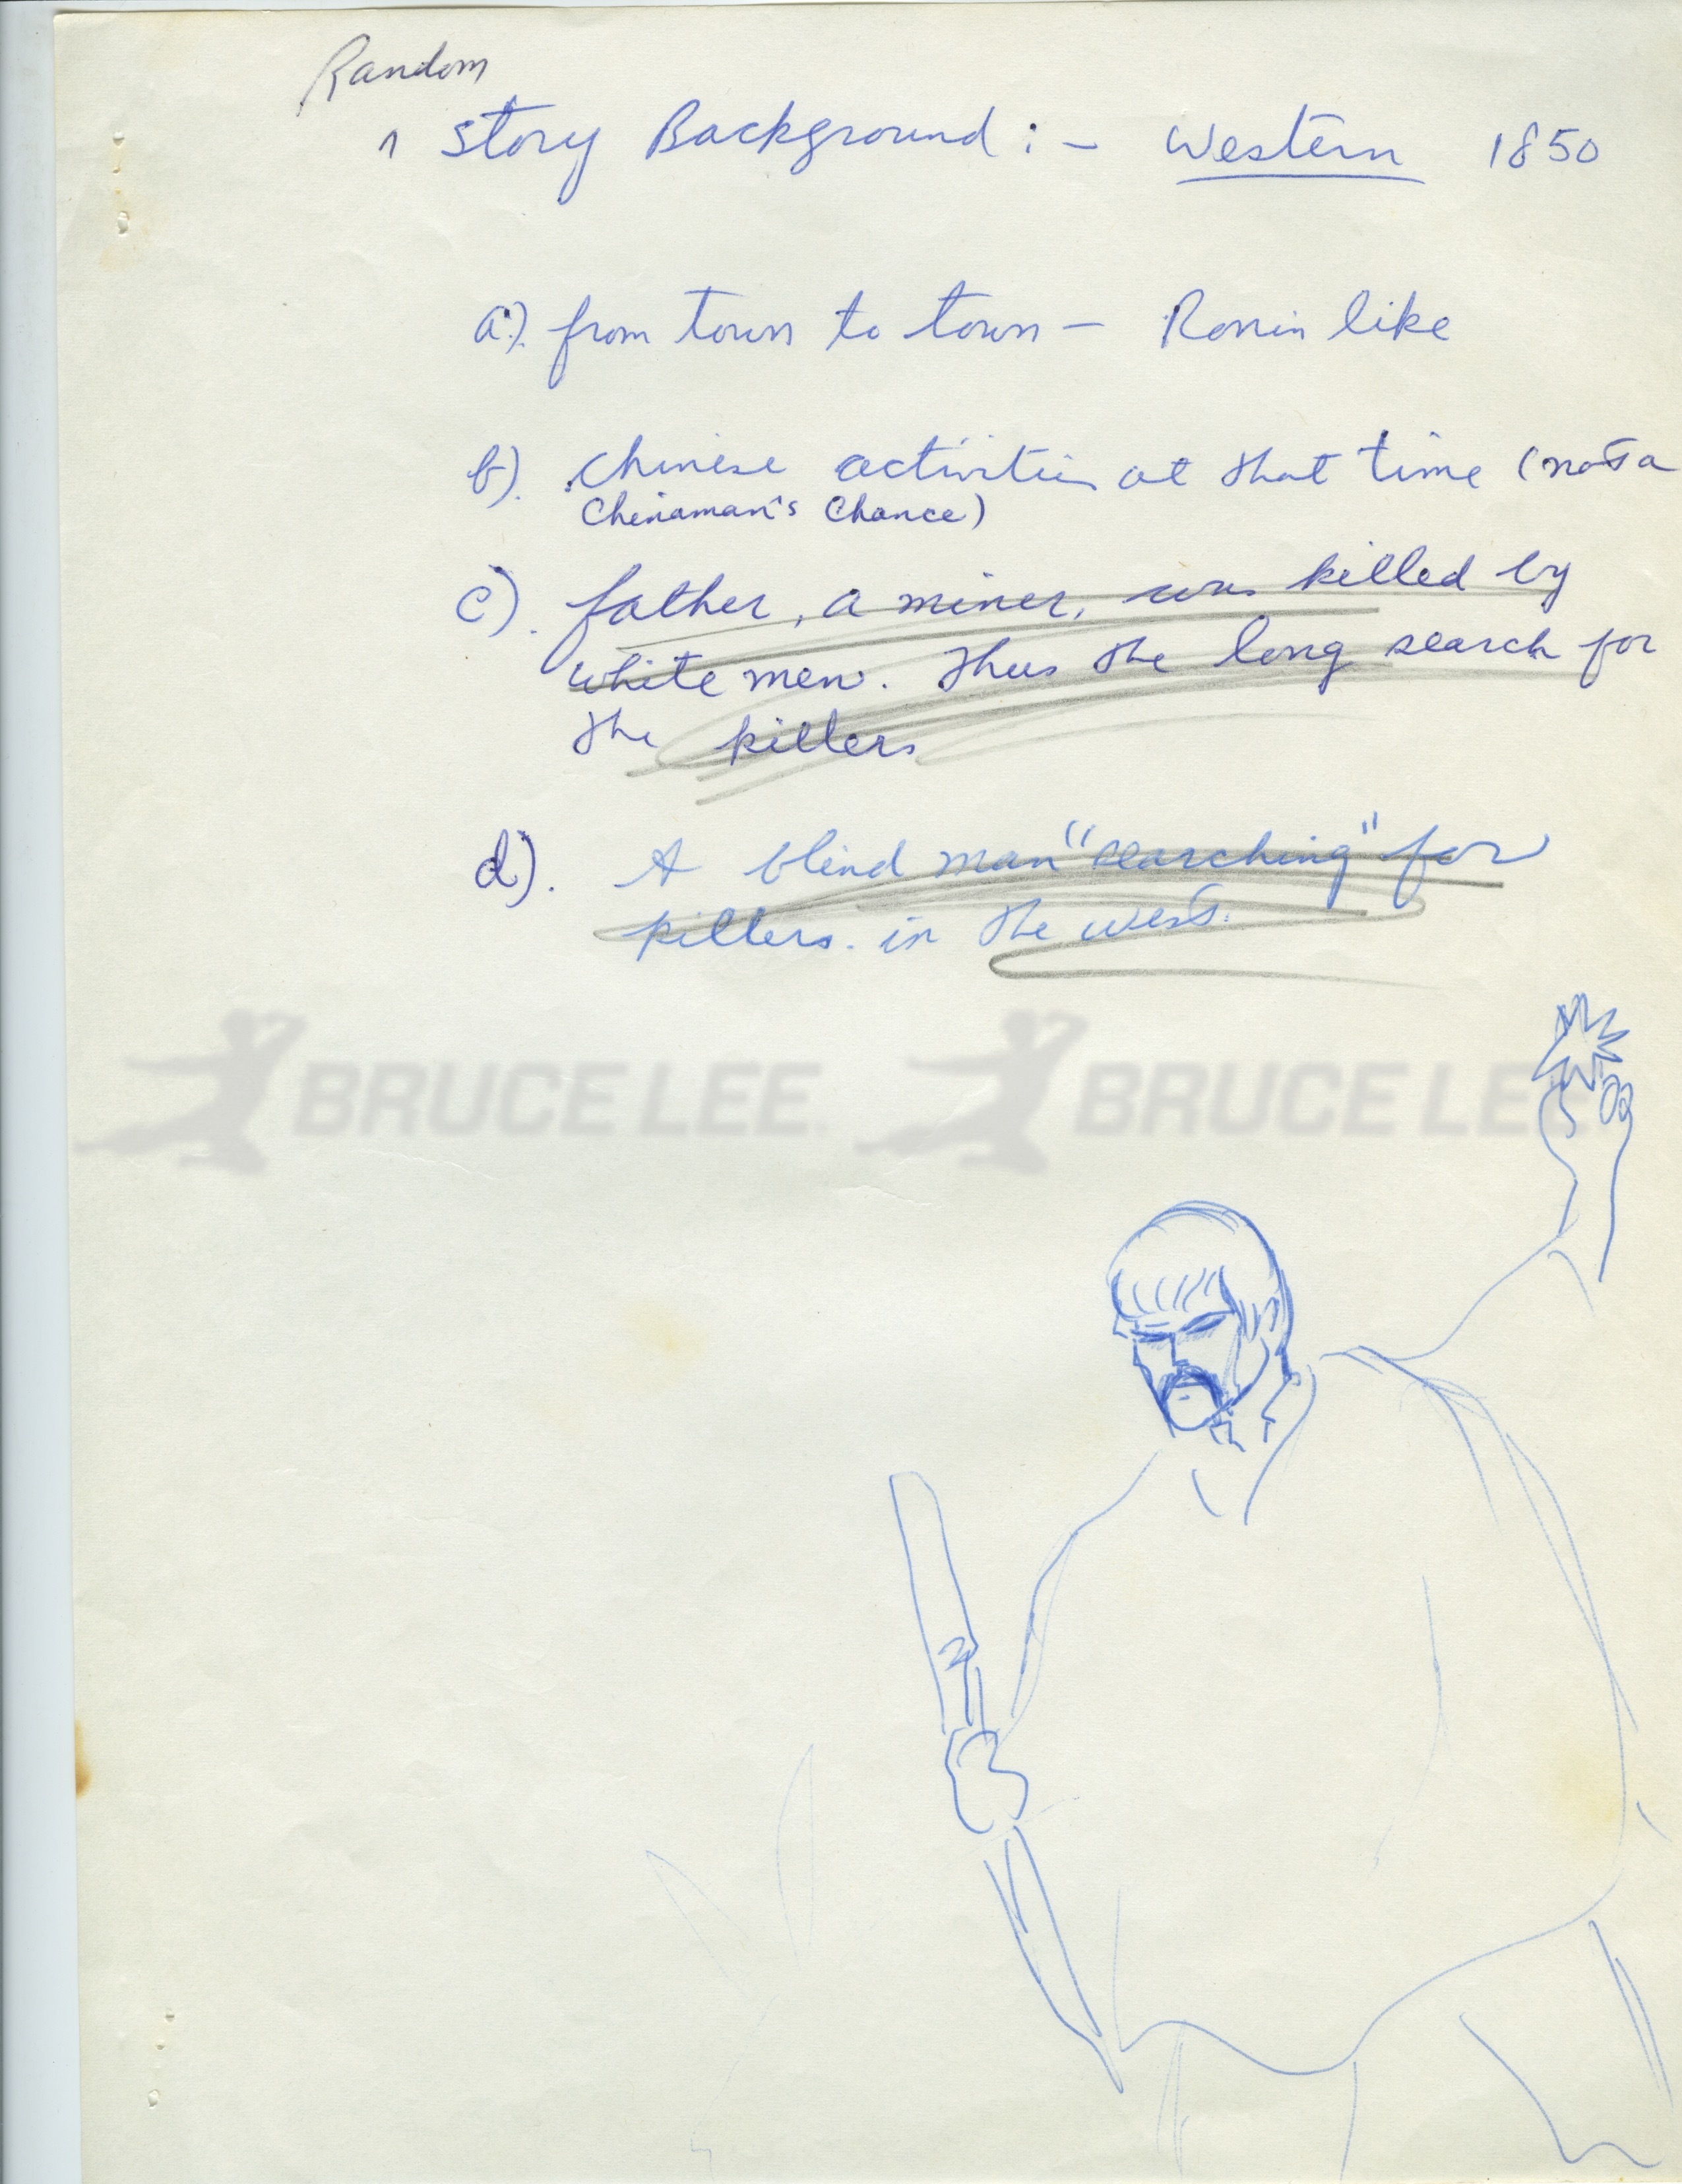 Random
1 Story Background : - Western 1850
a). from town to town - Ronin like
b). Chinese activities at that time (not a
Chinaman's Chance)
c). father, a miner, was killed by
white men. Thus the long search for
the killers
d). A blind man "searching" for
killers. in the west.
BRUCE LEE. BRUCE LEE